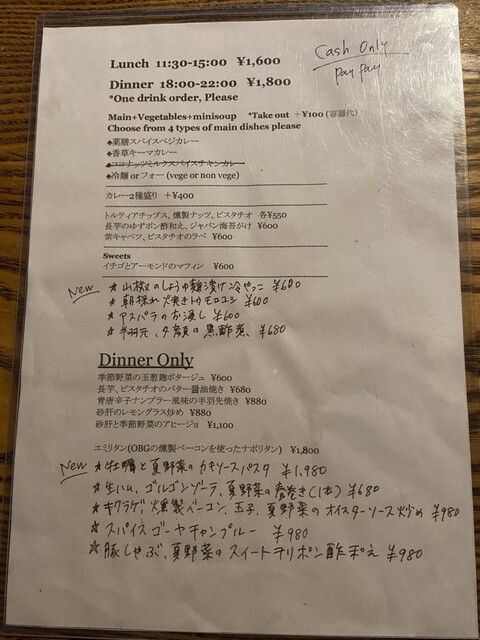 Cash Only
pay pay
Lunch 11:30-15:00 ¥1,600
Dinner 18:00-22:00 ¥1,800
*One drink order, Please
Main+Vegetables+minisoup *Take out +¥100 (容器代)
Choose from 4 types of main dishes please
♠薬膳スパイスベジカレー
♠香草キーマカレー
♠ココナッツミルクスパイスチキンカレー
♠冷麺 or フォー (vege or non vege)
カレー2種盛り +¥400
トルティアチップス、燻製ナッツ、ピスタチオ 各¥550
長芋のゆずポン酢和え、ジャパン海苔がけ ¥600
紫キャベツ、ピスタチオのラペ ¥600
Sweets
イチゴとアーモンドのマフィン ¥600
New
★山椒のしょうゆ麹漬け冷やっこ ¥600
★朝採れ焼きトウモロコシ ¥600
★アスパラのお浸し ¥600
★手羽元、夕顔の黒酢煮 ¥680
Dinner Only
季節野菜の玉葱麹ポタージュ ¥600
長芋、ピスタチオのバター醤油焼き ¥680
青唐辛子ナンプラー風味の手羽先焼き ¥880
砂肝のレモングラス炒め ¥880
砂肝と季節野菜のアヒージョ ¥1,100
エミリタン(OBGの燻製ベーコンを使ったナポリタン) ¥1,800
New
★牡蠣と夏野菜のカキソースパスタ ¥1,980
★生ハム、ゴルゴンゾーラ、夏野菜の春巻き(1本) ¥680
★キクラゲ、燻製ベーコン、玉子、夏野菜のオイスターソース炒め ¥980
★スパイスゴーヤチャンプルー ¥980
★豚しゃぶ、夏野菜のスイートチリポン酢和え ¥980